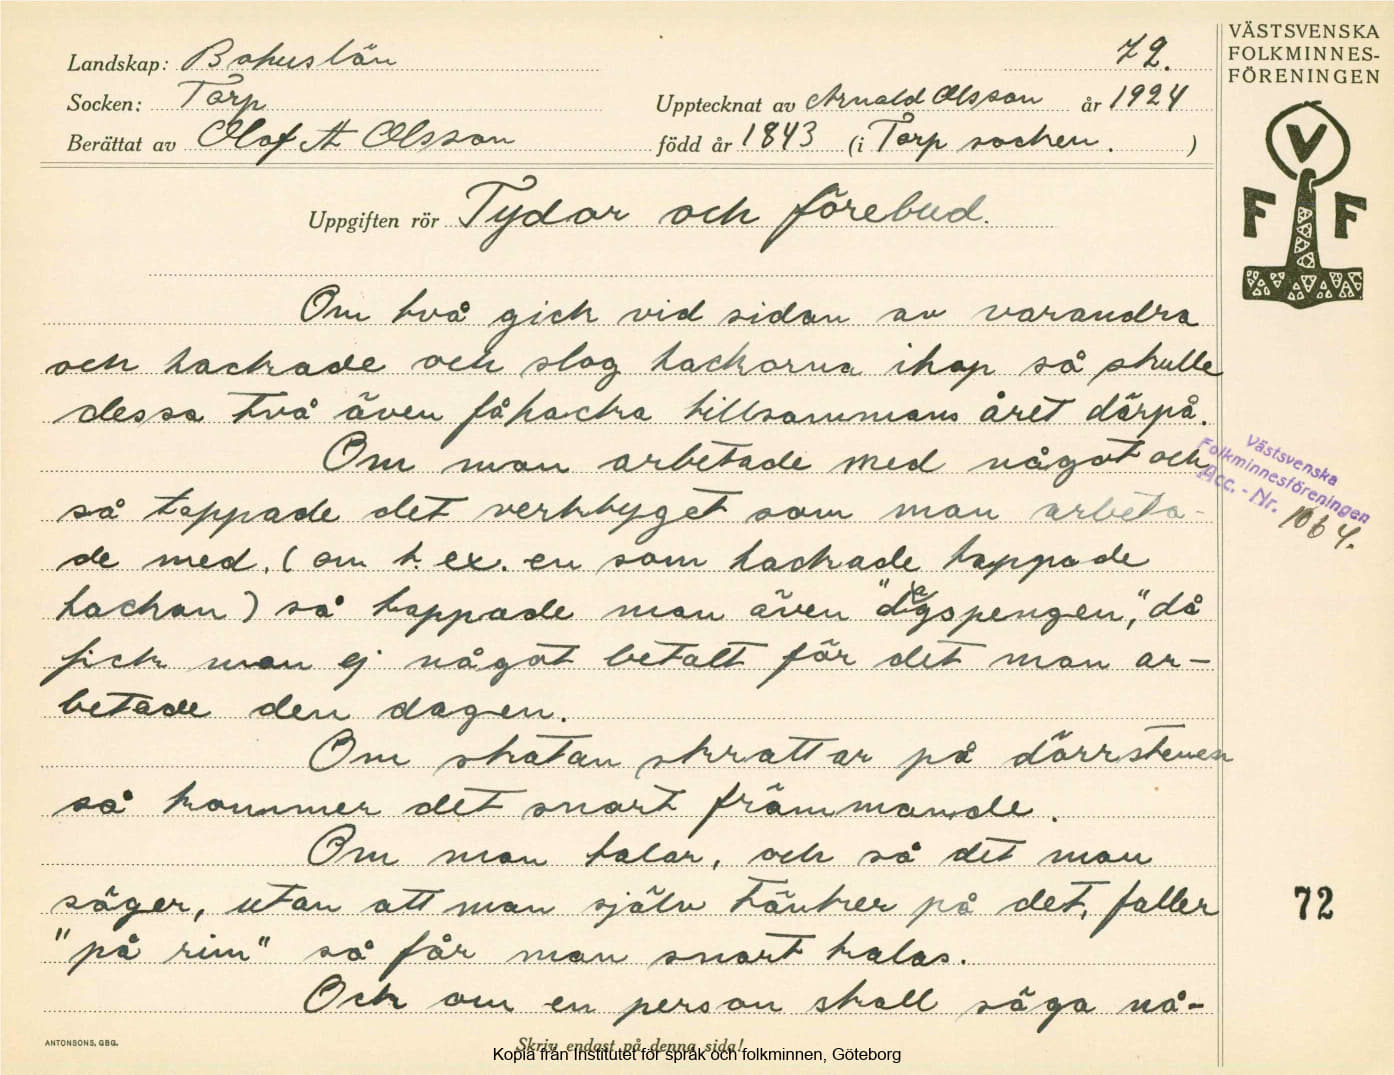 VÄSTSVENSKA
FOLKMINNES-
FÖRENINGEN
V
F F
Landskap: Bohuslän 72.
Socken: Torp Upptecknat av Arnald Olsson år 1924
Berättat av Olof A Olsson född år 1843 (i Torp socken. )
Uppgiften rör Tydor och förebud.
Om två gick vid sidan av varandra
och hackade och slog hackorna ihop så skulle
dessa två även få hacka tillsammans året därpå.
Om man arbetade med något och
så tappade det verktyget som man arbeta-
de med. (om t. ex. en som hackade tappade
hackan) så tappade man även "dagspengen," då
fick man ej något betalt för det man ar-
betade den dagen.
Om skatan skrattar på dörrstenen
så kommer det snart främmande.
Om man talar, och så det man
säger, utan att man själv tänker på det, faller
"på rim" så får man snart kalas.
Och om en person skall säga nå-
Västsvenska
Folkminnesföreningen
Acc.-Nr. 1064.
72
ANTONSONS, GBG.
Skriv endast på denna sida!
Kopia från Institutet för språk och folkminnen, Göteborg